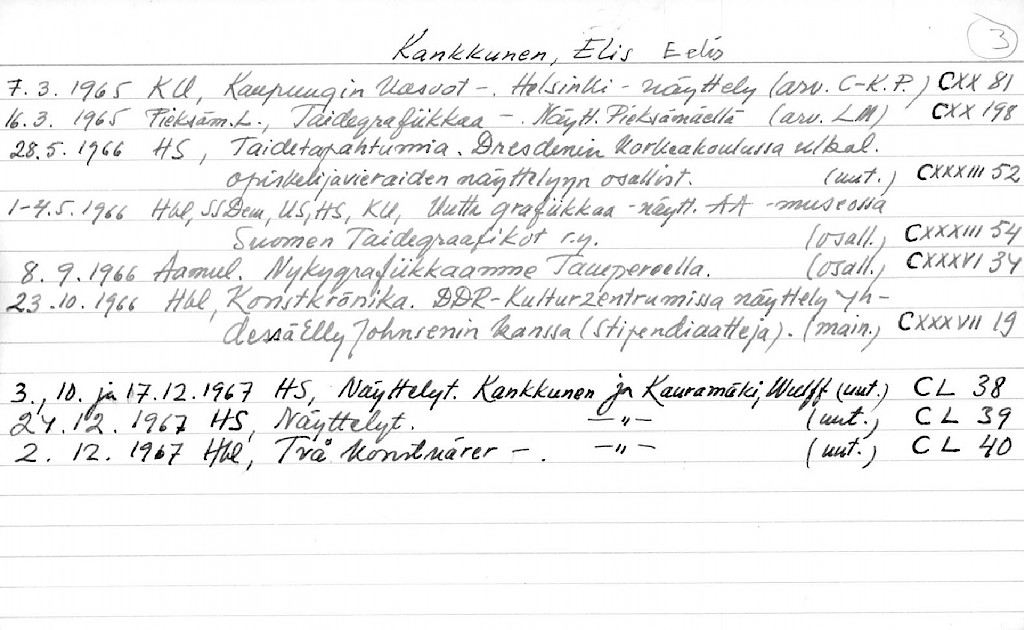 3
Kankkunen, Elis Eelis
7.3.1965 KU, Kaupungin kasvot -. Helsinki - näyttely (arv. C-K.P.) CXX 81
16.3.1965 Pieksäm.L., Taidegrafiikkaa -. Näytt. Pieksämäellä (arv. LM) CXX 198
28.5.1966 HS, Taidetapahtumia. Dresdenin korkeakoulussa ulkal.
opiskelijavieraiden näyttelyyn osallist. (uut.) CXXXIII 52
1-4.5.1966 Hbl, SSDem, US, HS, KU, Uutta grafiikkaa - näytt. AA - museossa
Suomen Taidegraafikot r.y. (osall.) CXXXIII 54
8.9.1966 Aamul. Nykygrafiikkaamme Tampereella. (osall.) CXXXVI 34
23.10.1966 Hbl, Konstkrönika. DDR-Kulturzentrumissa näyttely yh-
dessä Elly Johnsenin kanssa (Stipendiaatteja). (main.) CXXXVII 19
3., 10. ja 17.12.1967 HS, Näyttelyt. Kankkunen ja Kauramäki, Wulff (uut.) CL 38
24.12.1967 HS, Näyttelyt. -"- (uut.) CL 39
2.12.1967 Hbl, Två konstnärer -. -"- (uut.) CL 40